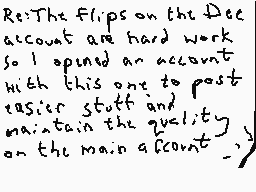 Re:The flips on the Dee
account are hard work
so I opened an account
with this one to post
easier stuff and
maintain the quality
on the main account